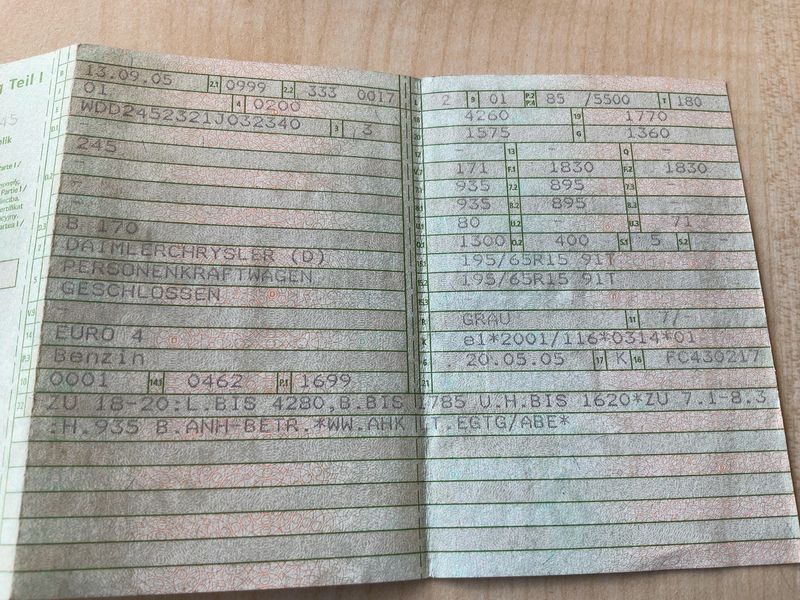 g Teil I
B 13.09.05 2.1 0999 2.2 333 0017
J 01 4 0200
E WDD2452321J032340 3 3
245
-
-
D.3 B 170
DAIMLERCHRYSLER (D)
5 PERSONENKRAFTWAGEN
GESCHLOSSEN
V.9 -
14 EURO 4
P.3 Benzin
10 0001 14.1 0462 P.1 1699
L 2 9 01 P.2 P.4 85 /5500 T 180
18 4260 19 1770
20 1575 G 1360
12 - 13 - Q -
V.7 171 F.1 1830 F.2 1830
7.1 935 7.2 895 7.3 -
8.1 935 8.2 895 8.3 -
U.1 80 U.2 - U.3 71
O.1 1300 O.2 400 S.1 5 S.2 -
15.1 195/65R15 91T
15.2 195/65R15 91T
15.3 -
R GRAU 11 7/-
K e1*2001/116*0314*01
6 20.05.05 17 K 16 FC430217
21
22 ZU 18-20:L.BIS 4280,B.BIS 1785 U.H.BIS 1620*ZU 7.1-8.3
:H.935 B.ANH-BETR.*WW.AHK LT.EGTG/ABE*